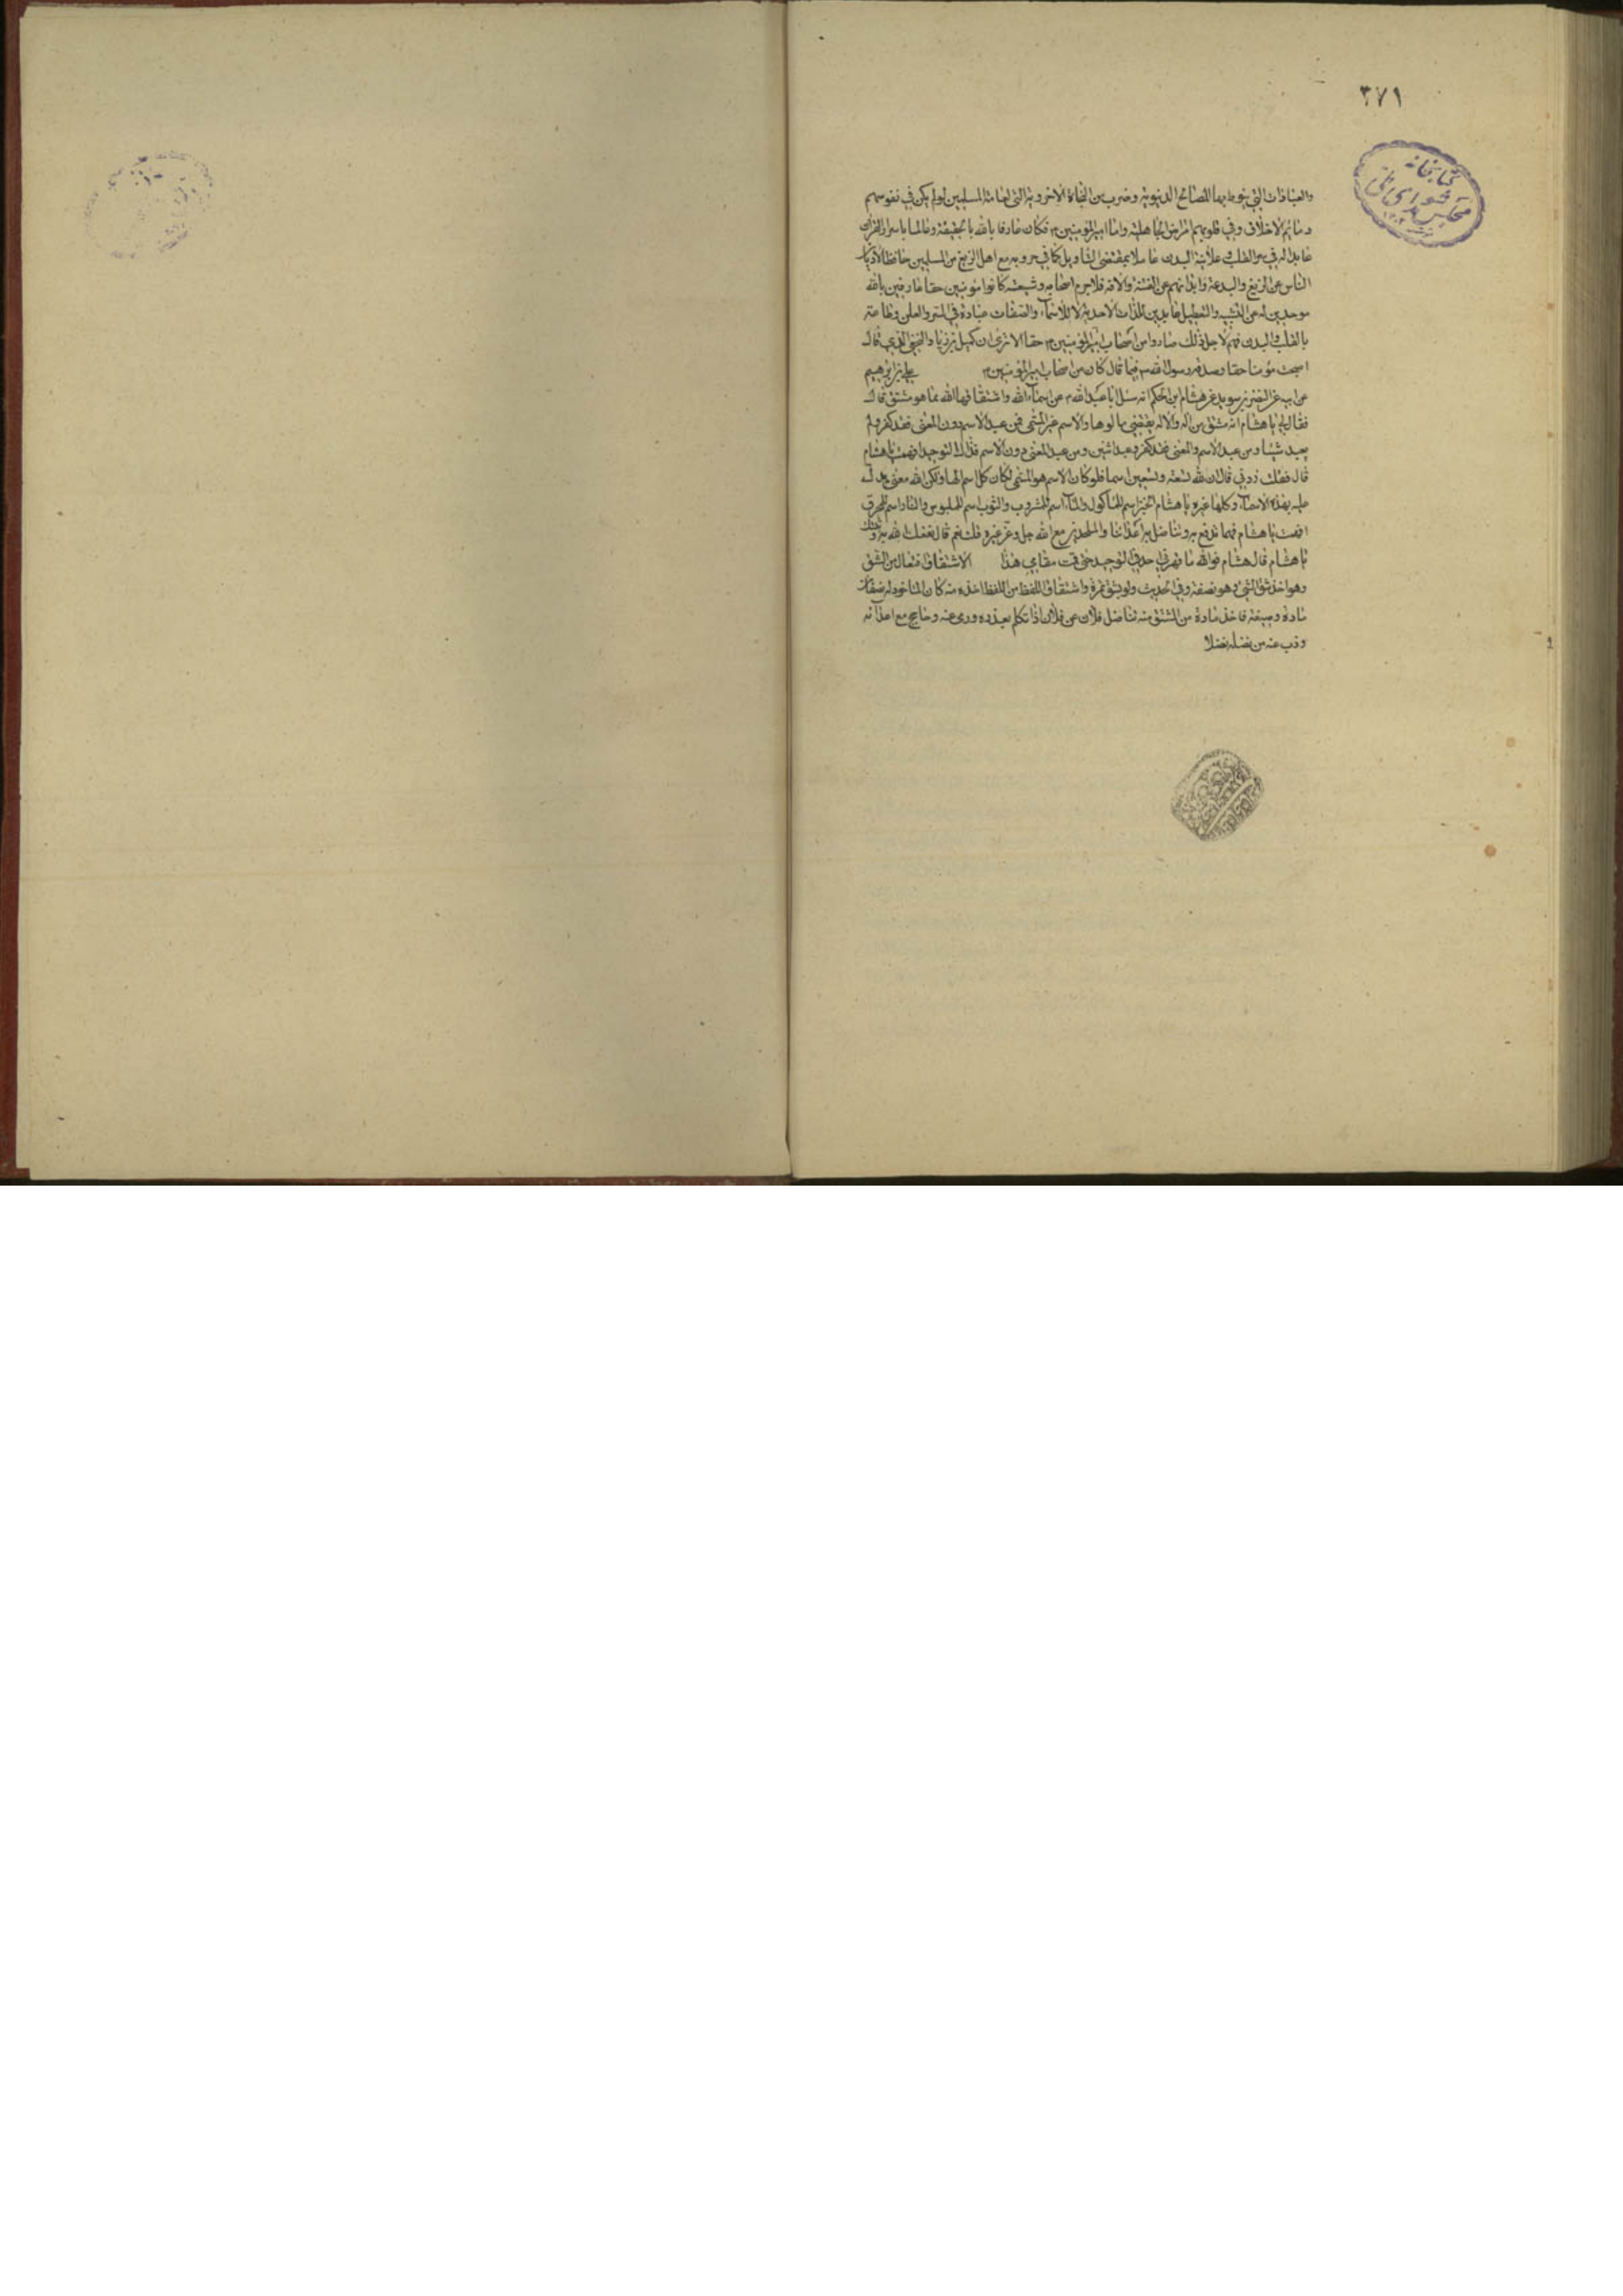 ٣٧١
كتابخانه
مجلس شورای ملی
والعبادات التي ينوط بها المصالح الدنيوية وضرب من النجاة الاخروية التي لعامة المسلمين لو لم يكن في نفوسهم
ذمائم الاخلاق وفي قلوبهم امراض الجاهلية واما امير المؤمنين ع فكان عارفا بالله بالحقيقة وعالما باسرار القران
عابدا له في سر القلب وعلانية البدن عاملا بمقتضى التاويل كما في حروبه مع اهل الزيغ من المسلمين حافظا لاديان
الناس عن الزيغ والبدعة وابدانهم عن الفتنة والافة فلا جرم اصحابه وشيعته كانوا مؤمنين حقا عارفين بالله
موحدين له عن التشبيه والتعطيل عابدين للذات الاحدية لا للاسماء والصفات عبادة في السر والعلن وطاعة
بالقلب والبدن فهم لاجل ذلك صاروا من اصحاب امير المؤمنين ع حقا الا ترى ان كميل بن زياد النخعي الذي قال
اصبحت مؤمنا حقا وصدقه رسول الله ص فيما قال كان من اصحاب امير المؤمنين ع علي بن ابرهيم
عن ابيه عن النضر بن سويد عن هشام ابن الحكم انه سئل ابا عبد الله ع عن اسماء الله واشتقاقها الله مما هو مشتق قال
فقال لي يا هشام الله مشتق من اله والاله يقتضي مالوها والاسم غير المسمى فمن عبد الاسم دون المعنى فقد كفر ولم
يعبد شيئا ومن عبد الاسم والمعنى فقد كفر وعبد اثنين ومن عبد المعنى دون الاسم فذاك التوحيد افهمت يا هشام
قال فقلت زدني قال ان لله تسعة وتسعين اسما فلو كان الاسم هو المسمى لكان كل اسم الها ولكن الله معنى يدل
عليه بهذه الاسماء وكلها غيره يا هشام الخبز اسم للماكول والماء اسم للمشروب والثوب اسم للملبوس والنار اسم للمحرق
افهمت يا هشام فهما تدفع به وتناضل به اعدائنا والملحدين مع الله جل وعز غيره قلت نعم قال نفعك الله به وثبتك
يا هشام قال هشام فوالله ما قهرني احد في التوحيد حتى قمت مقامي هذا الاشتقاق افتعال من الشق
وهو اخذ شق الشئ وهو نصفه وفي الحديث ولو بشق تمرة واشتقاق اللفظ من اللفظ اخذه منه كان الماخوذ له
مادة وصيغة فاخذ مادة من المشتق منه تناضل فلان عن فلان اذا تكلم بعذره ورمى عنه وحاجج مع اعدائه
وذب عنه من نضله نضلا